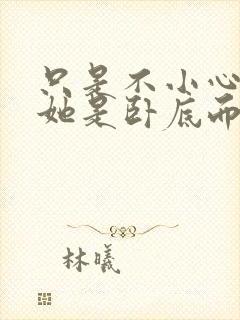 只是不小心
她是卧底而
林曦